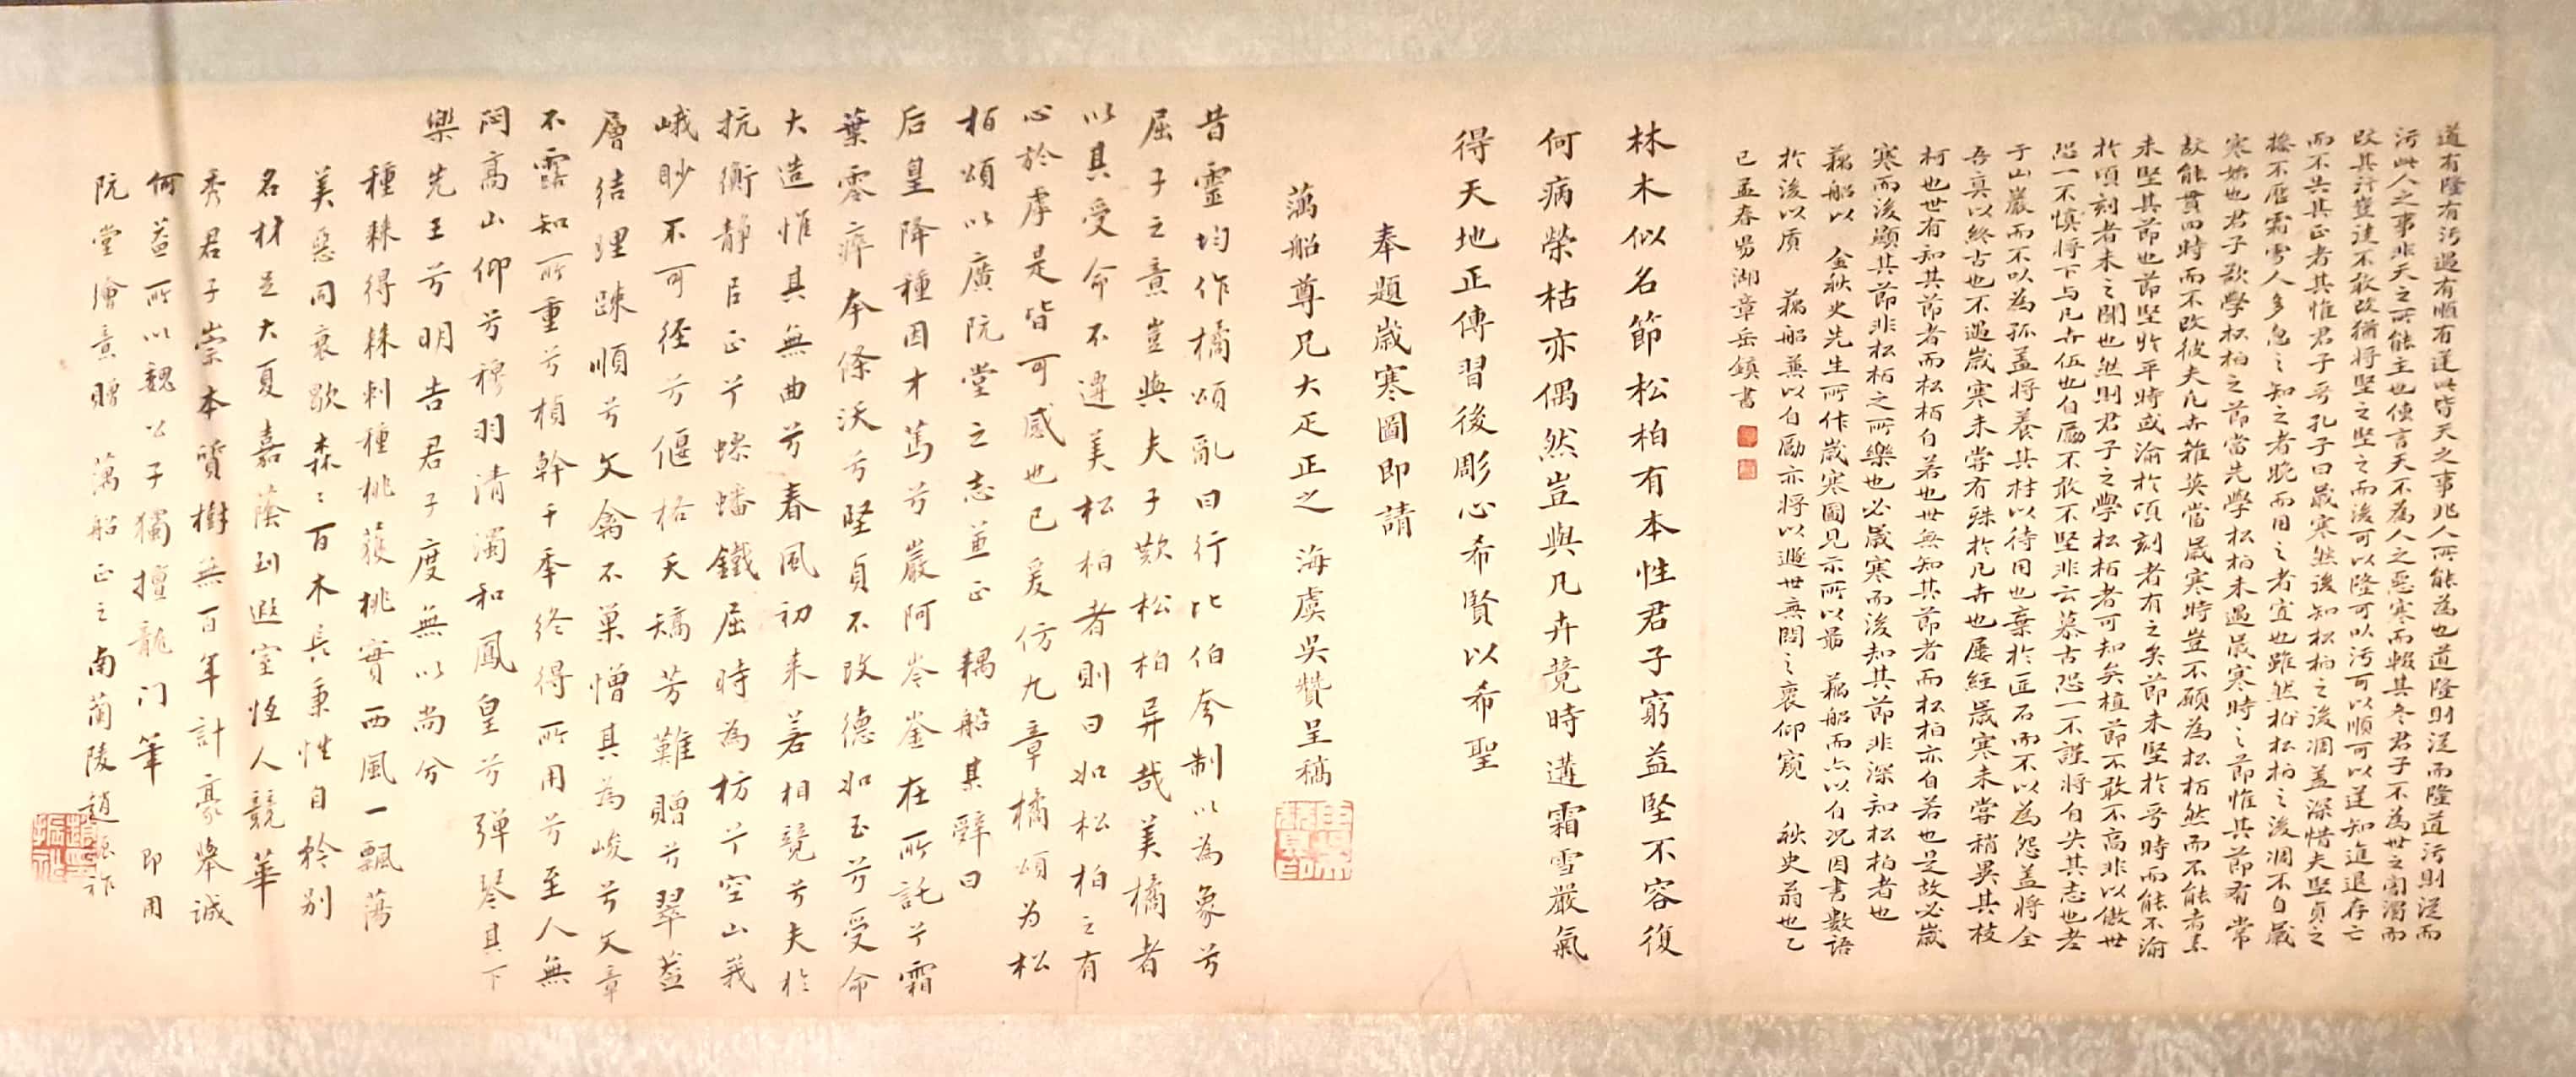 道有隆有污遇有順有逆此皆天之事非人所能為也道隆則從而隆道污則從而
污此人之事非天之所能主也傳言天不為人之惡寒而輟其冬君子不為世之溷濁而
改其行豈徒不敢改猶將堅之堅之而後可以隆可以污可以順可以逆知進退存亡
而不失其正者其惟君子乎孔子曰歲寒然後知松柏之後凋蓋深惜夫堅貞之
操不歷霜雪人多忽之知之者晚而用之者宜也雖然松柏之後凋不自歲
寒始也君子欲學松柏之節當先學松柏未遇歲寒時之節惟其節有常
故能貫四時而不改彼夫凡卉雜英當歲寒時豈不願為松栢然而不能者素
未堅其節也節堅於平時或渝於頃刻者有之矣節未堅於平時而能不渝
於頃刻者未之聞也然則君子之學松栢者可知矣植節不敢不高非以傲世
恐一不慎將下与凡卉伍也自勵不敢不堅非云慕古恐一不謹將自失其志也老
于山巖而不以為孤蓋將養其材以待用也棄於匠石而不以為怨蓋將全
吾真以終古也不遇歲寒未嘗有殊於凡卉也屢經歲寒未嘗稍異其枝
柯也世有知其節者而松栢自若也世無知其節者而松柏亦自若也是故必歲
寒而後顯其節非松栢之所樂也必歲寒而後知其節非深知松柏者也
藕船以 金秋史先生所作歲寒圖見示所以勗 藕船而亦以自况因書數語
於後以质 藕船兼以自勵亦將以遯世無悶之衷仰窺 秋史翁也乙
巳孟春曷湖章岳鎮書
林木似名節松柏有本性君子窮益堅不容復
何病榮枯亦偶然豈與凡卉競時遘霜雪嚴氣
得天地正傳習後彫心希賢以希聖
奉題歲寒圖即請
藕船尊兄大疋正之 海虞吳贊呈稿
昔靈均作橘頌亂曰行比伯夸制以為象兮
屈子之意豈與夫子歎松柏异哉美橘者
以其受命不遷美松柏者則曰如松柏之有
心於虖是皆可感也已爰仿九章橘頌为松
栢頌以廣阮堂之志並正 藕船其辭曰
后皇降種因才篤兮巖阿岑崟在所託兮霜
葉零瘁本條沃兮堅貞不改德如玉兮受命
大造惟其無曲兮春風初来若相競兮夫於
抗衡静自正兮蟉蟠鐵屈時為枋兮空山峩
峨眇不可徑兮偃格夭矯芳難贈兮翠蓋
層結理踈順兮文禽不巢憎其為峻兮文章
不露知所重兮楨幹千季終得所用兮至人無
悶高山仰兮穆羽清濁和鳳皇兮彈琴其下
樂先王兮明告君子度無以尚兮
種棘得棘刺種桃获桃實西風一飄蕩
美惡同衰歇森々百木长秉性自矜别
名材足大夏嘉蔭到遐室恆人競華
秀君子崇本質樹無百年計豪舉誠
何益所以魏公子獨擅龍门筆 即用
阮堂繪意贈 藕船正之 南蘭陵趙振祚